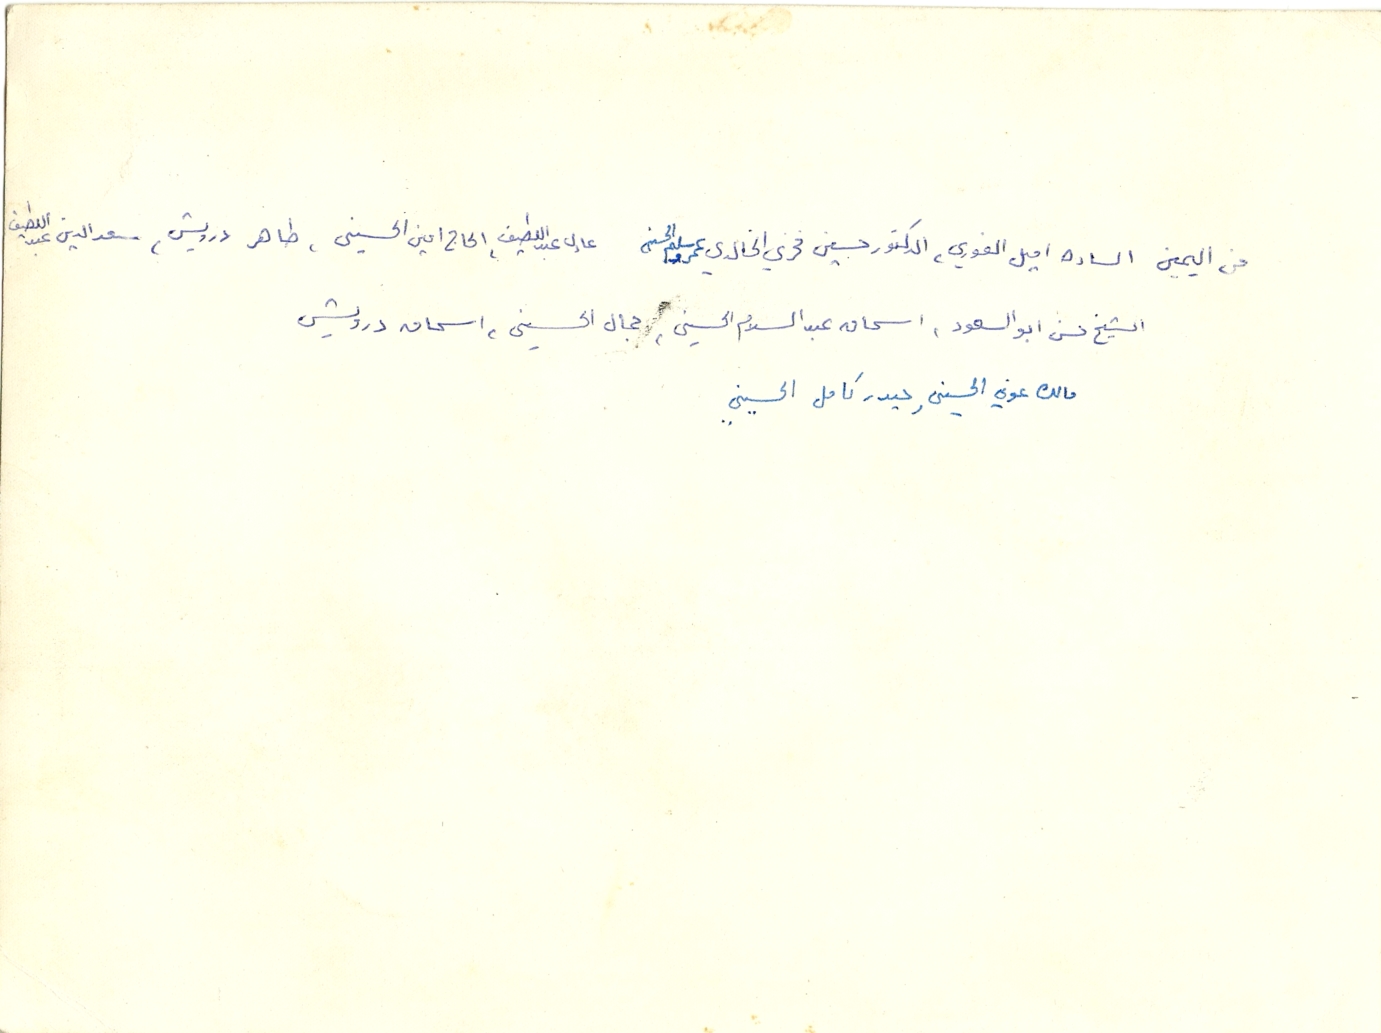 من اليمين السادة اميل الغوري، الدكتور حسين فخري الخالدي عمر سليم الحسيني عادل عبد اللطيف، الحاج امين الحسيني، طاهر درويش، سعد الدين عبد اللطيف
الشيخ حسن ابو السعود، اسحاق عبد السلام الحسيني، جمال الحسيني، اسحاق درويش
مالك عوني الحسيني، حيدر كامل الحسيني